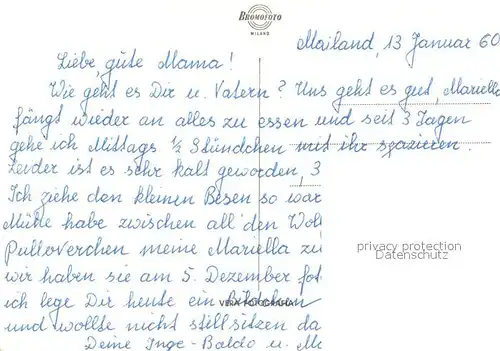 BROMOFOTO
MILANO
Mailand, 13 Januar 60
Liebe, gute Mama!
Wie geht es Dir u. Vatern? Uns geht es gut, Mariella
fängt wieder an alles zu essen und seit 3 Tagen
gehe ich Mittags ½ Stündchen mit ihr spazieren.
Leider ist es sehr kalt geworden, 3
Ich ziehe den kleinen Besen so war
Mühe habe zwischen all' den Woll
Pulloverchen meine Mariella zu
privacy protection
Datenschutz
wir haben sie am 5. Dezember fot
ich lege Dir heute ein Bildchen
VERA FOTOGRAFIA
und wollte nicht stillsitzen da
Deine Inge - Baldo u. Ma